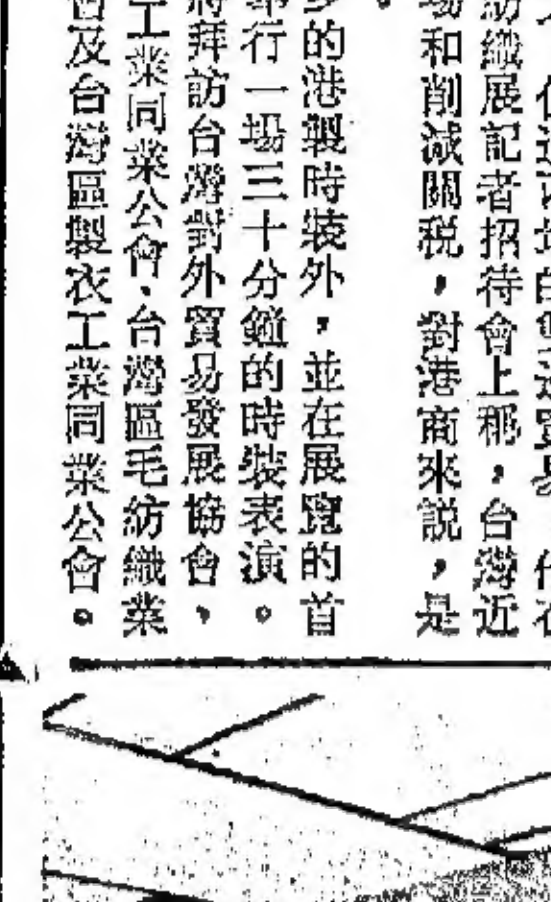 紡織展記者招待會上稱，台灣近
場和削減關税，對港商來説，是
。
多的港製時裝外，並在展覽的首
舉行一場三十分鐘的時裝表演。
將拜訪台灣對外貿易發展協會、
工業同業公會、台灣區毛紡織業
會及台灣區製衣工業同業公會。